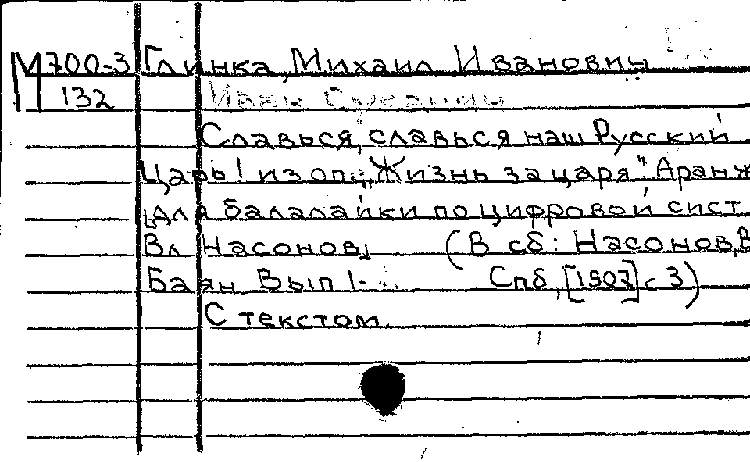 М 700-3 Глинка, Михаил Иванович
132 Иван Сусанин
Славься, славься наш Русский
Царь! из оп. „Жизнь за царя". Аранж
для балалайки по цифровой сист
Вл Насонов. (В сб: Насонов, В
Баян Вып 1. Спб, [1907] с 3)
С текстом.